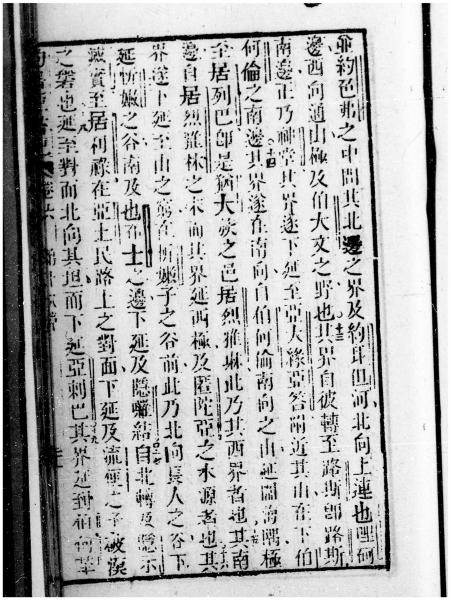 亞約色弗之中間其北邊之界及約耳但河北向上連也耶何
邊西向通山極及伯大文之野也其界自彼轉至路斯即路斯
南邊正乃神堂其界遂下延至亞大綠亞答附近其山在下伯
何倫之南邊其界遂在南向自伯何倫南向之山延圍海隅極
至居列巴即是猶大族之邑居烈雅琳此乃其西界者也其南
邊自居烈雅林之末而其界延西極及匿陀亞之水源者也其
界遂下延至山之窮在忻嫩子之谷前此乃北向長人之谷下
延忻嫩之谷南及也布士之邊下延及隱囉結自北轉及隱示
篾實至居利祿在亞土民路上之對面下延及流便之子破漢
之磐也延至對面北向其坦而下延亞剌巴其界延對